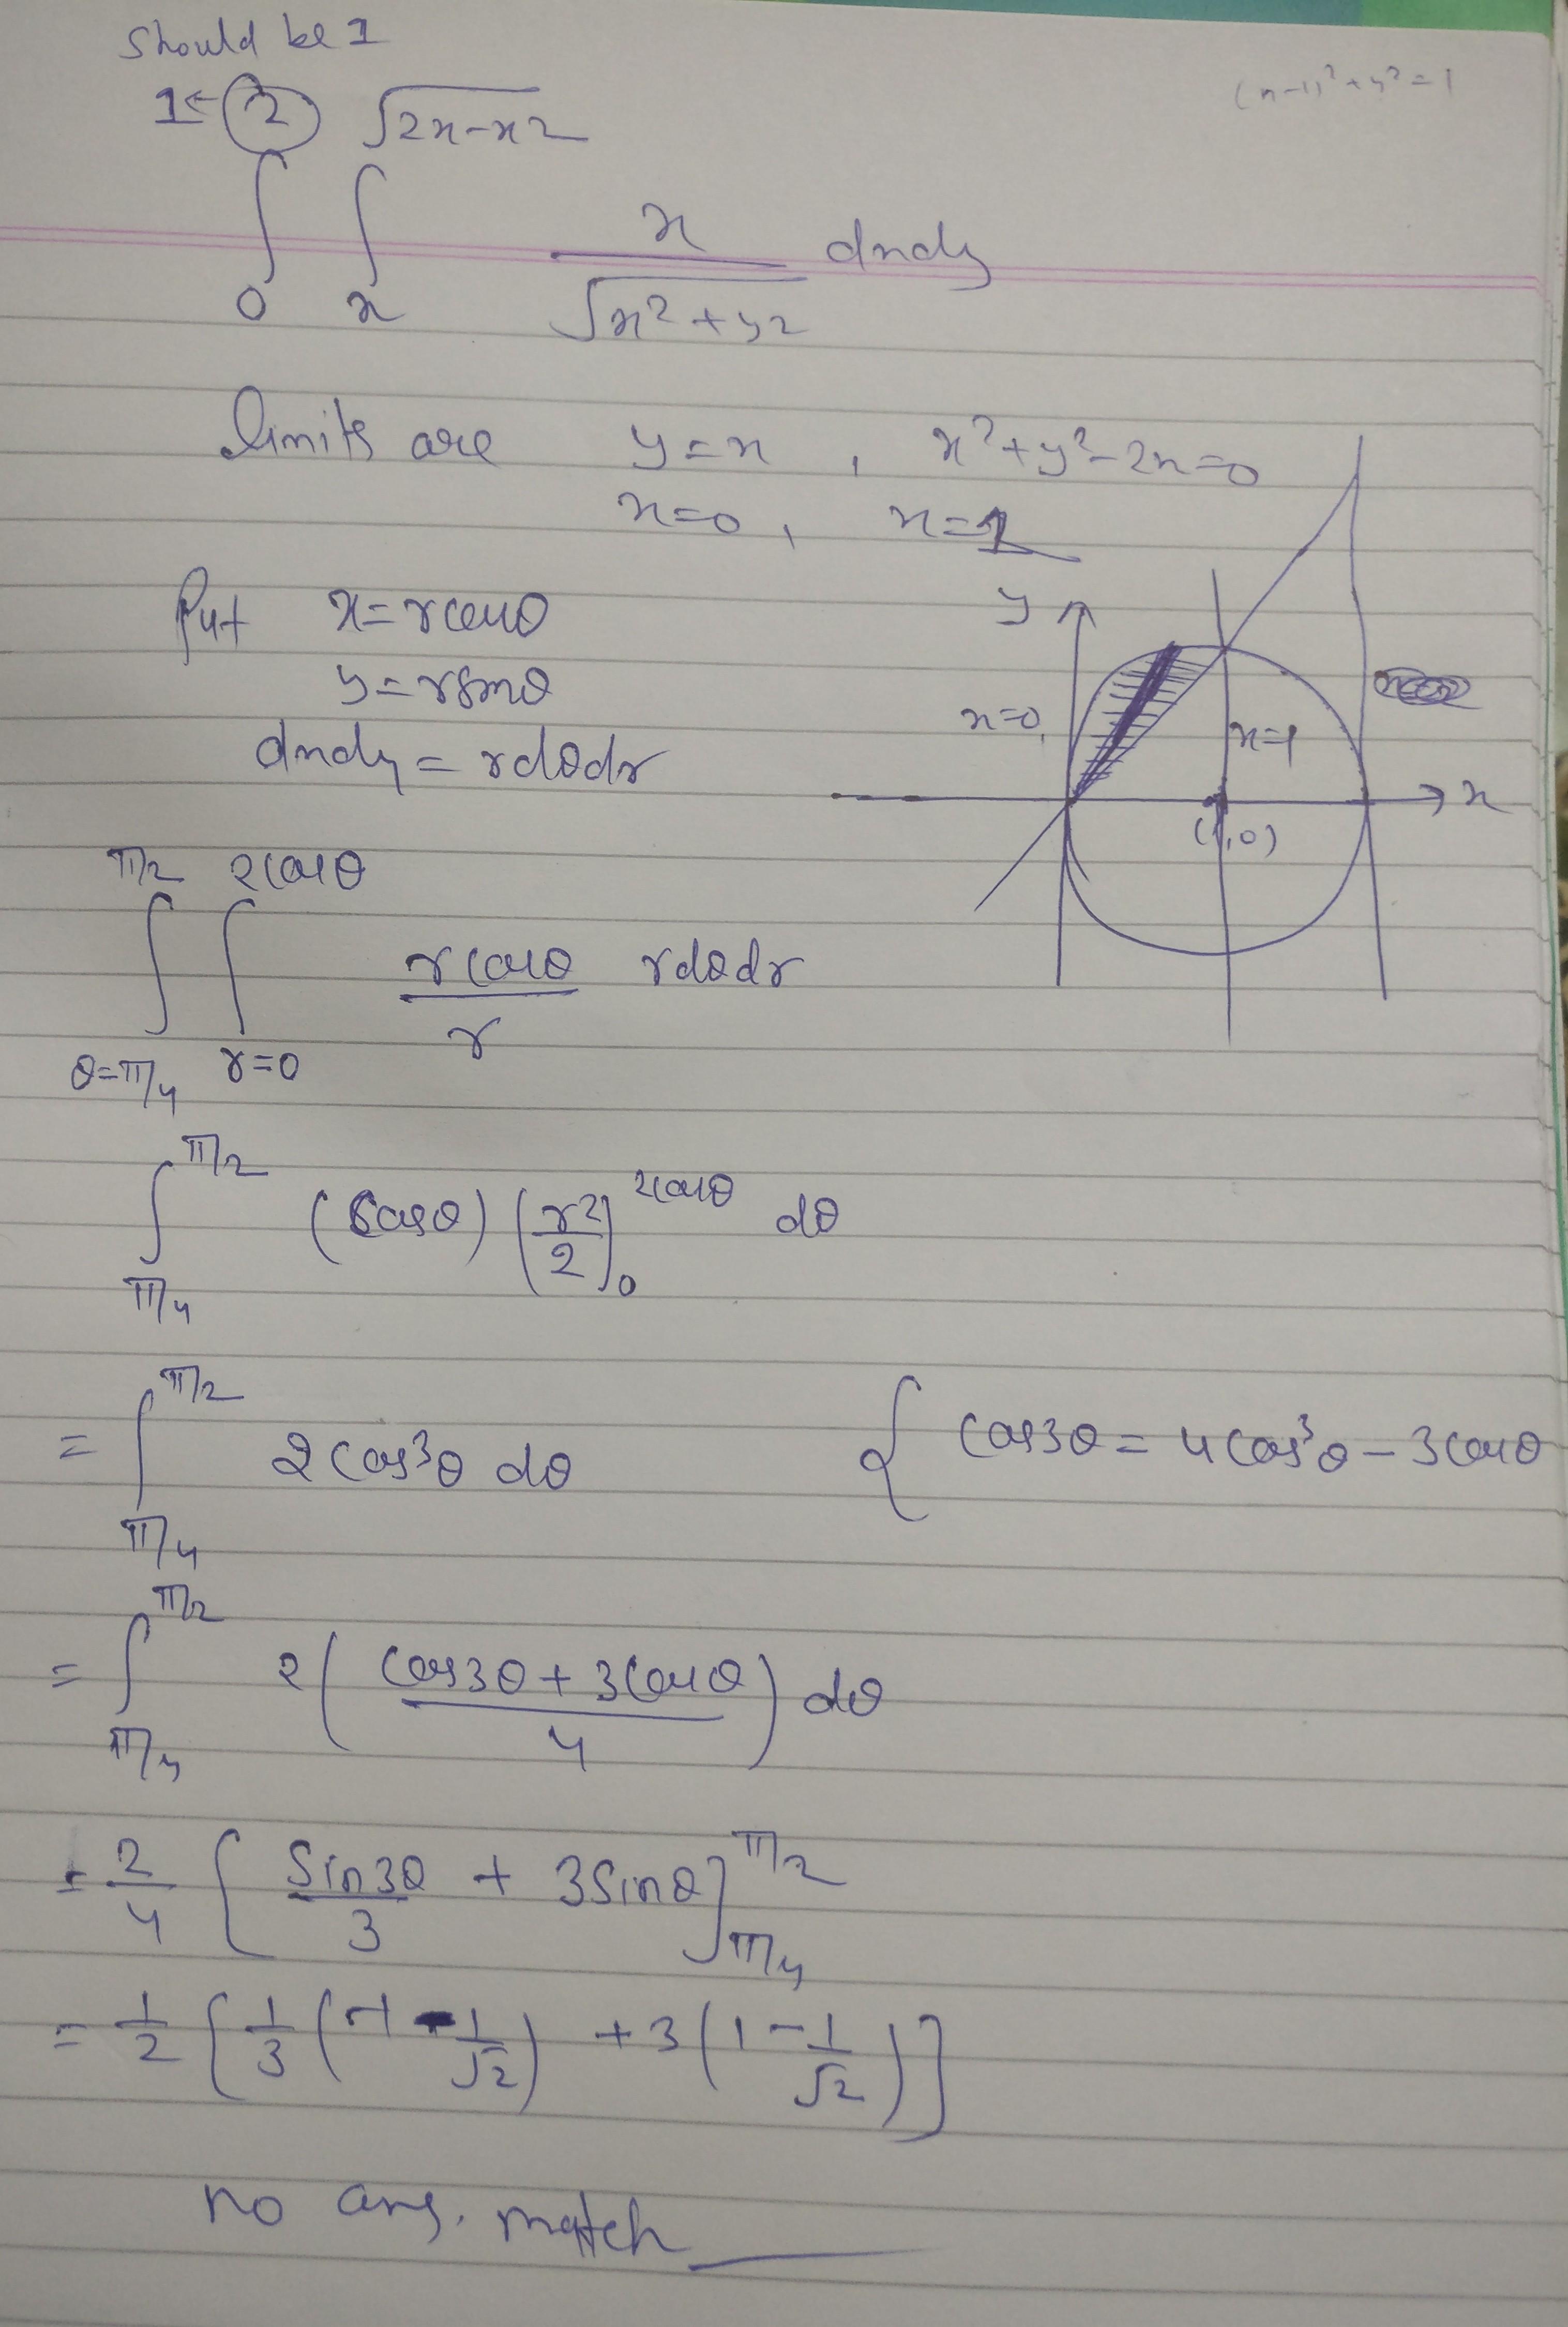 should be 1
(x-1)²+y²=1
1← 2 √2x-x²
∫ ∫ x/√x²+y² dxdy
0 x
limits are y=x , x²+y²-2x=0
x=0, x=1
Put x=rcosθ
y=rsinθ
dxdy=rdθdr
y
x=0,
x=1
x
(1,0)
π/2 2cosθ
∫ ∫ rcosθ/r rdθdr
θ=π/4 r=0
∫_{π/4}^{π/2} (cosθ) (r²/2)_0^{2cosθ} dθ
= ∫_{π/4}^{π/2} 2cos³θ dθ { cos3θ=4cos³θ-3cosθ
= ∫_{π/4}^{π/2} 2(cos3θ+3cosθ/4) dθ
= 2/4 [sin3θ/3 + 3sinθ]_{π/4}^{π/2}
= 1/2 [1/3 (-1 - 1/√2) + 3(1 - 1/√2)]
no ans. match